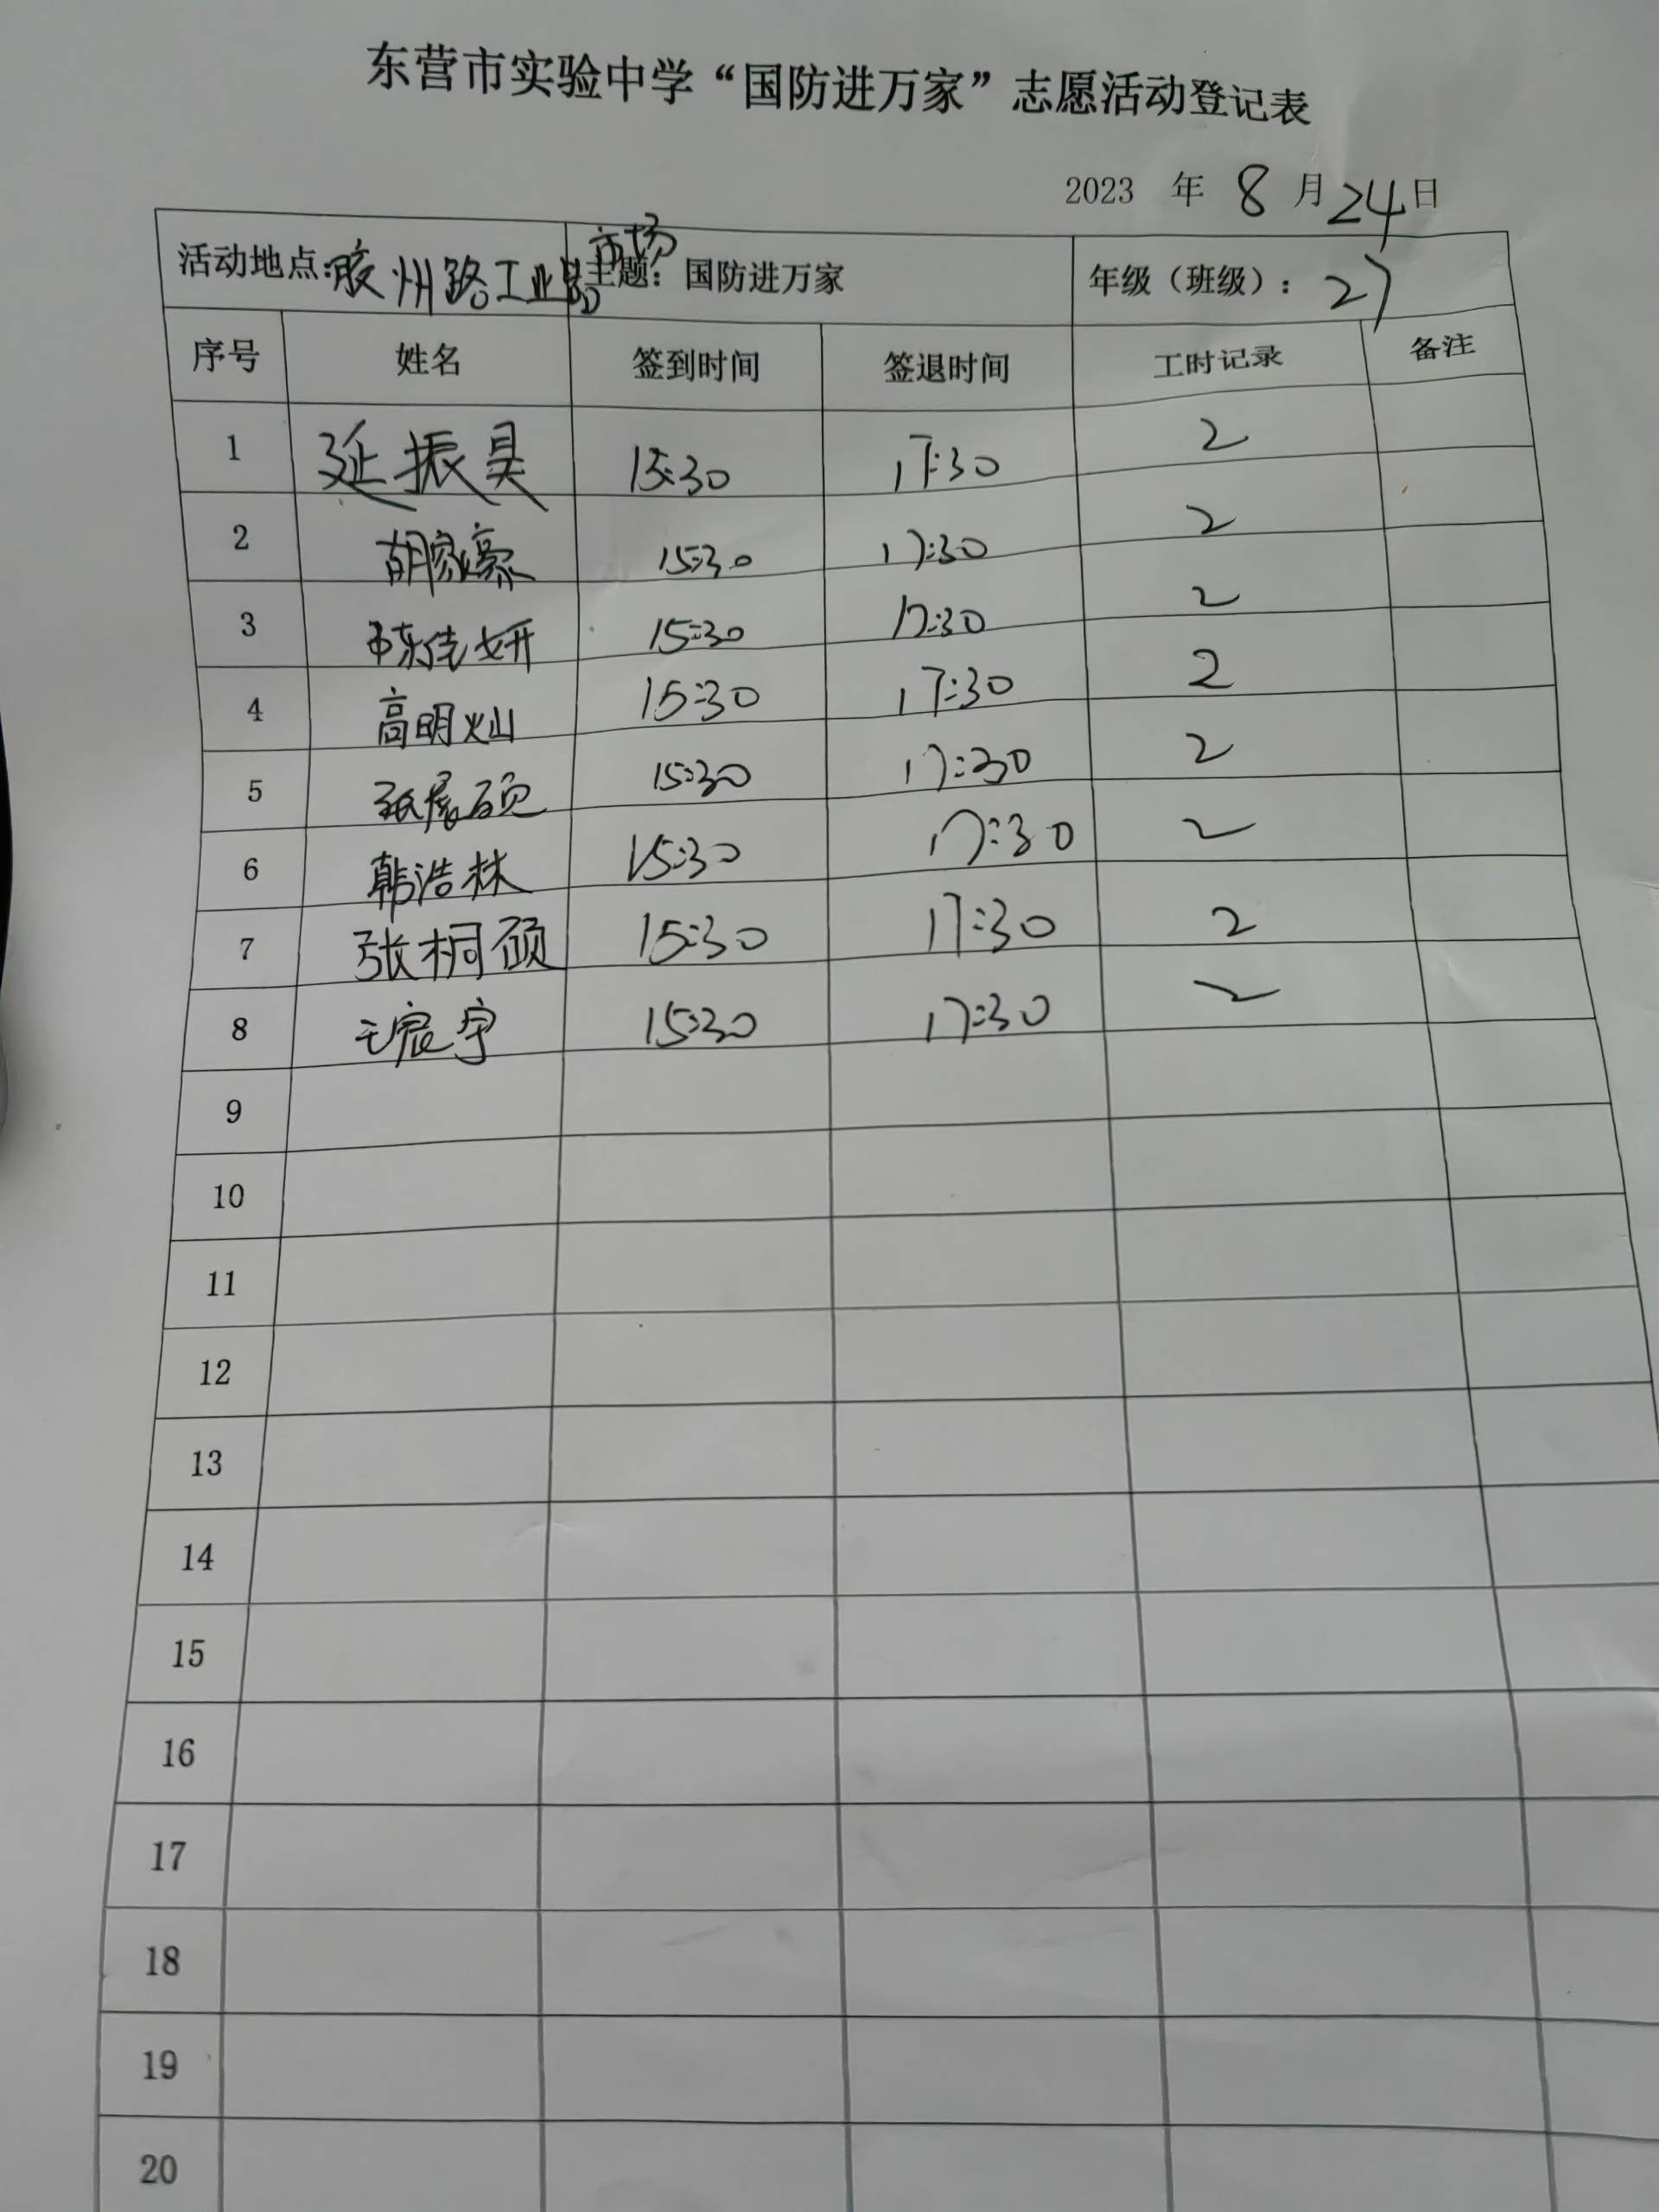 东营市实验中学“国防进万家”志愿活动登记表
2023 年 8 月 24 日
活动地点:胶州路工业 市场 主题：国防进万家 年级（班级）：27
序号 姓名 签到时间 签退时间 工时记录 备注
1 延振昊 15:30 17:30 2
2 胡家豪 15:30 17:30 2
3 陈佳妍 15:30 17:30 2
4 高明灿 15:30 17:30 2
5 张展硕 15:30 17:30 2
6 韩浩林 15:30 17:30 2
7 张桐硕 15:30 17:30 2
8 王宸宇 15:30 17:30 2
9
10
11
12
13
14
15
16
17
18
19
20